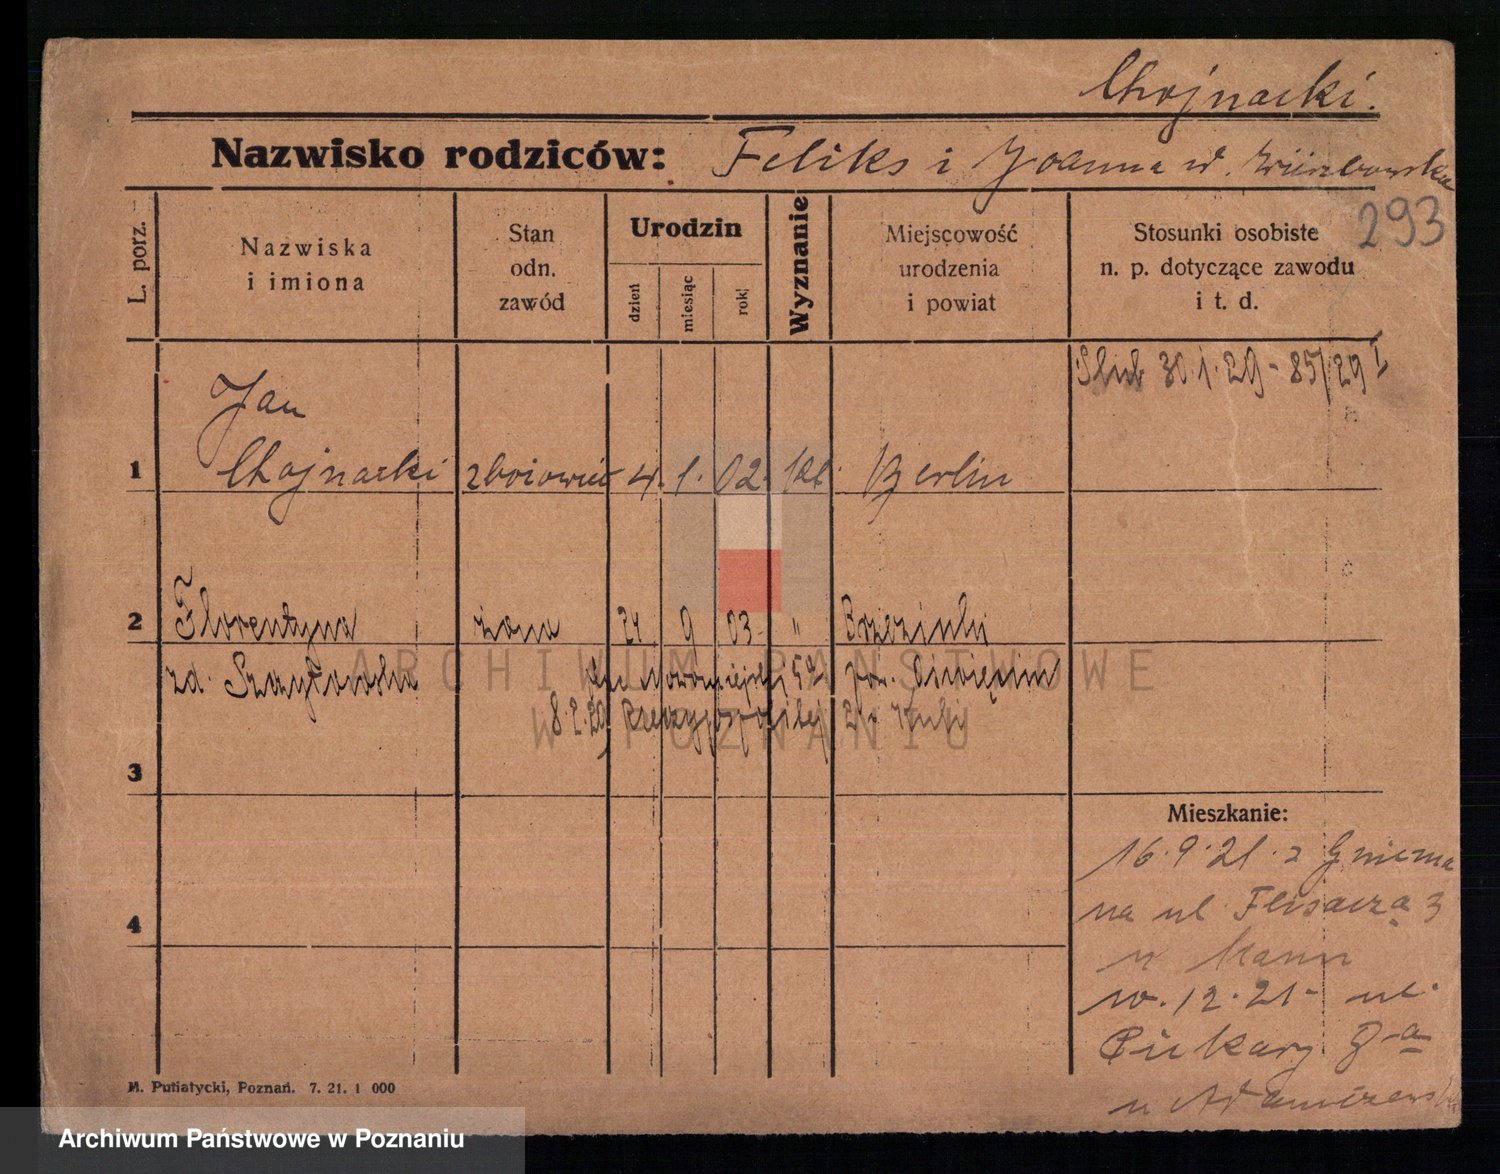 Chojnacki.
Nazwisko rodziców: Feliks i Joanna
293
L. porz.
Nazwiska
i imiona
Stan
odn.
zawód
Urodzin
dzień
miesiąc
rok
Wyznanie
Miejscowość
urodzenia
i powiat
Stosunki osobiste
n. p. dotyczące zawodu
i t. d.
Ślub 30.1.29 - 85/29 I
Jan
1 Chojnacki 4. 1. 02. kt. Berlin
2 Florentyna żona 24 9 03 " Brzezinky
zd. 59 pow. Oświęcim
8.2.29
3
Mieszkanie:
16.9.21. z Gniezna
na ul Flisacza 3
4
10.12.21 - ul.
Piekary 8-a
u
M. Putiatycki, Poznań. 7. 21. 1 000
ARCHIWUM PAŃSTWOWE
W POZNANIU
Archiwum Państwowe w Poznaniu